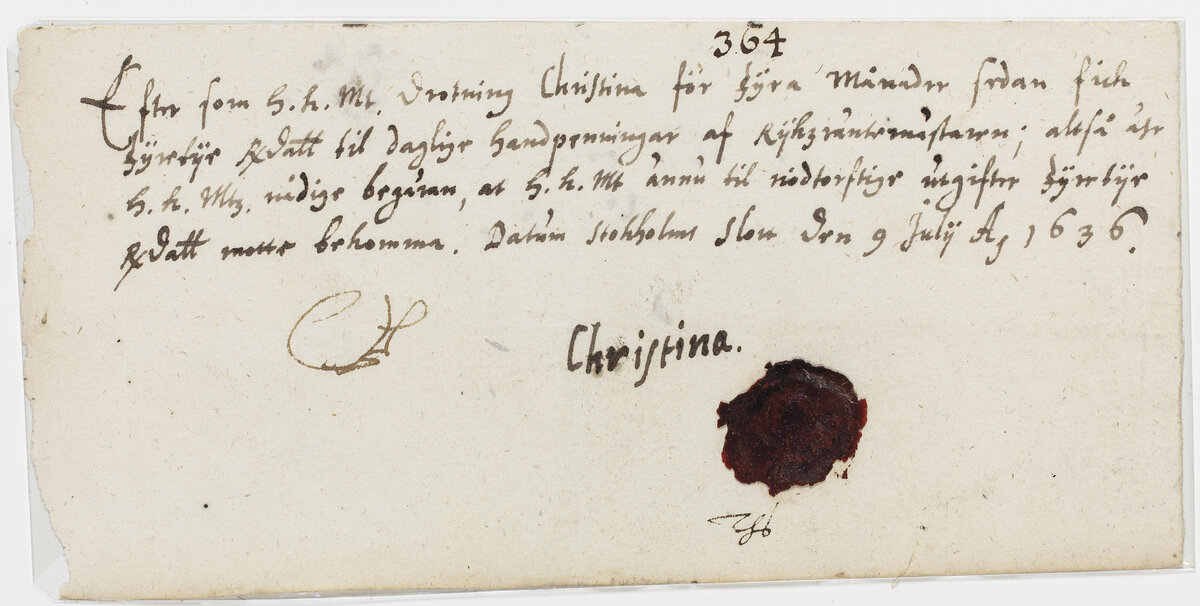 364
Efter som H. K. Mt. Drotning Christina för fyra Månader sedan fick
fyretije Rdall til daglige handpenningar af Rijkzräntemästaren; altså är
H. K. Mtz. nådige begäran, at H. K. Mt ännu til nödtorftige utgifter fyretije
Rdall motte bekomma. Datum Stokholms Slott den 9 Julij A° 1636.
Christina.